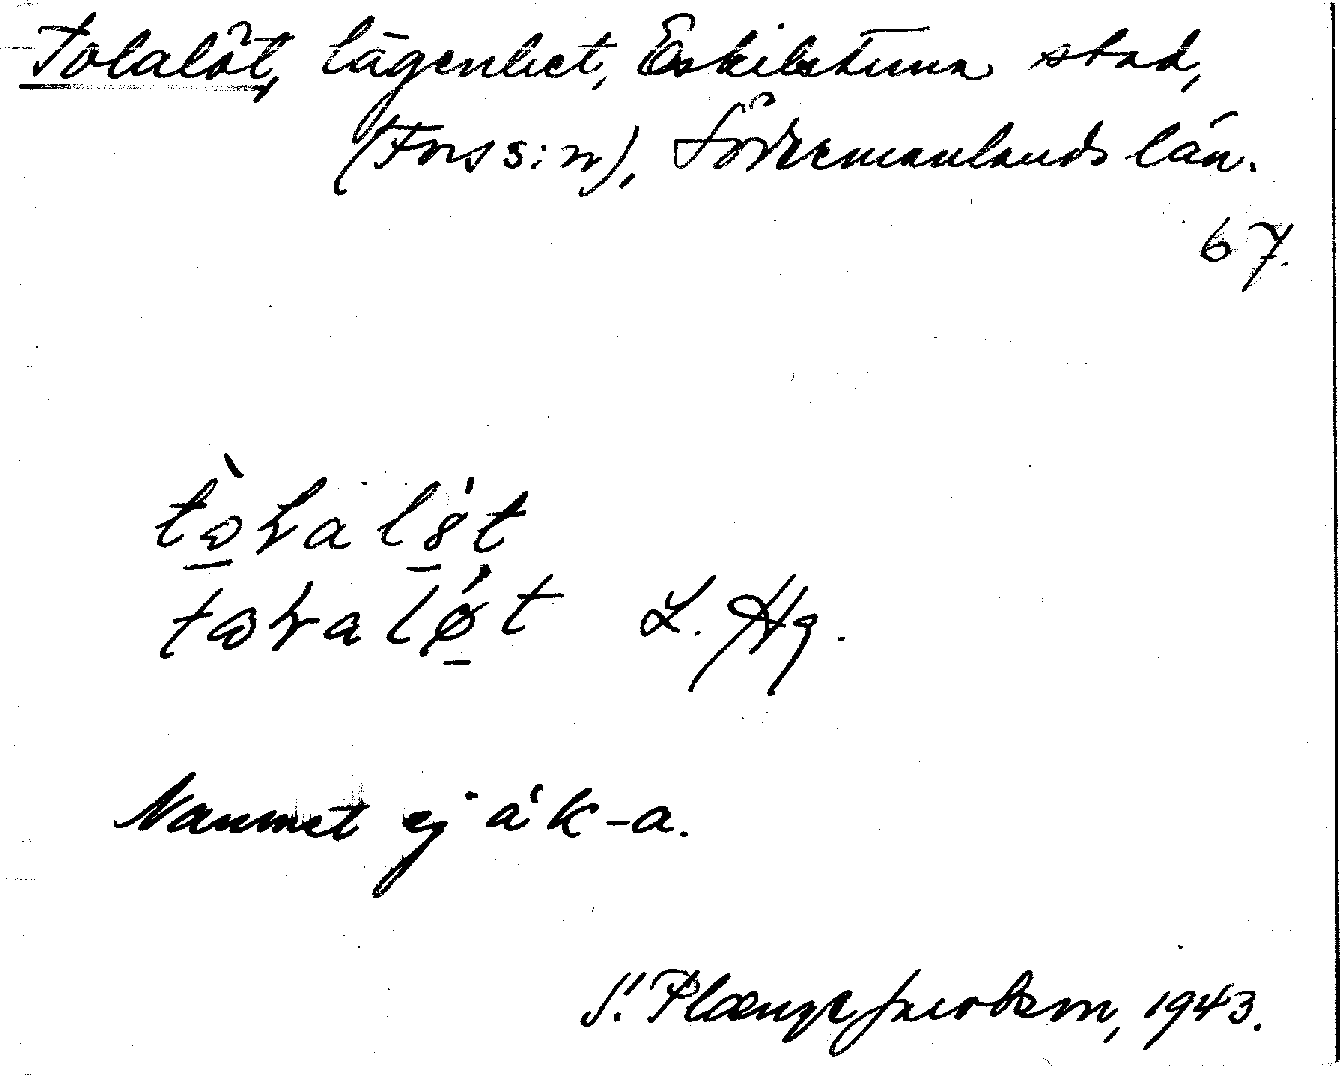 Tolalöt, lägenhet, Eskilstuna stad,
(Fors s:n), Södermanlands län.
67.
L. Hg.
Namnet ej å k-a.
S. Plænge Jacobson, 1943.